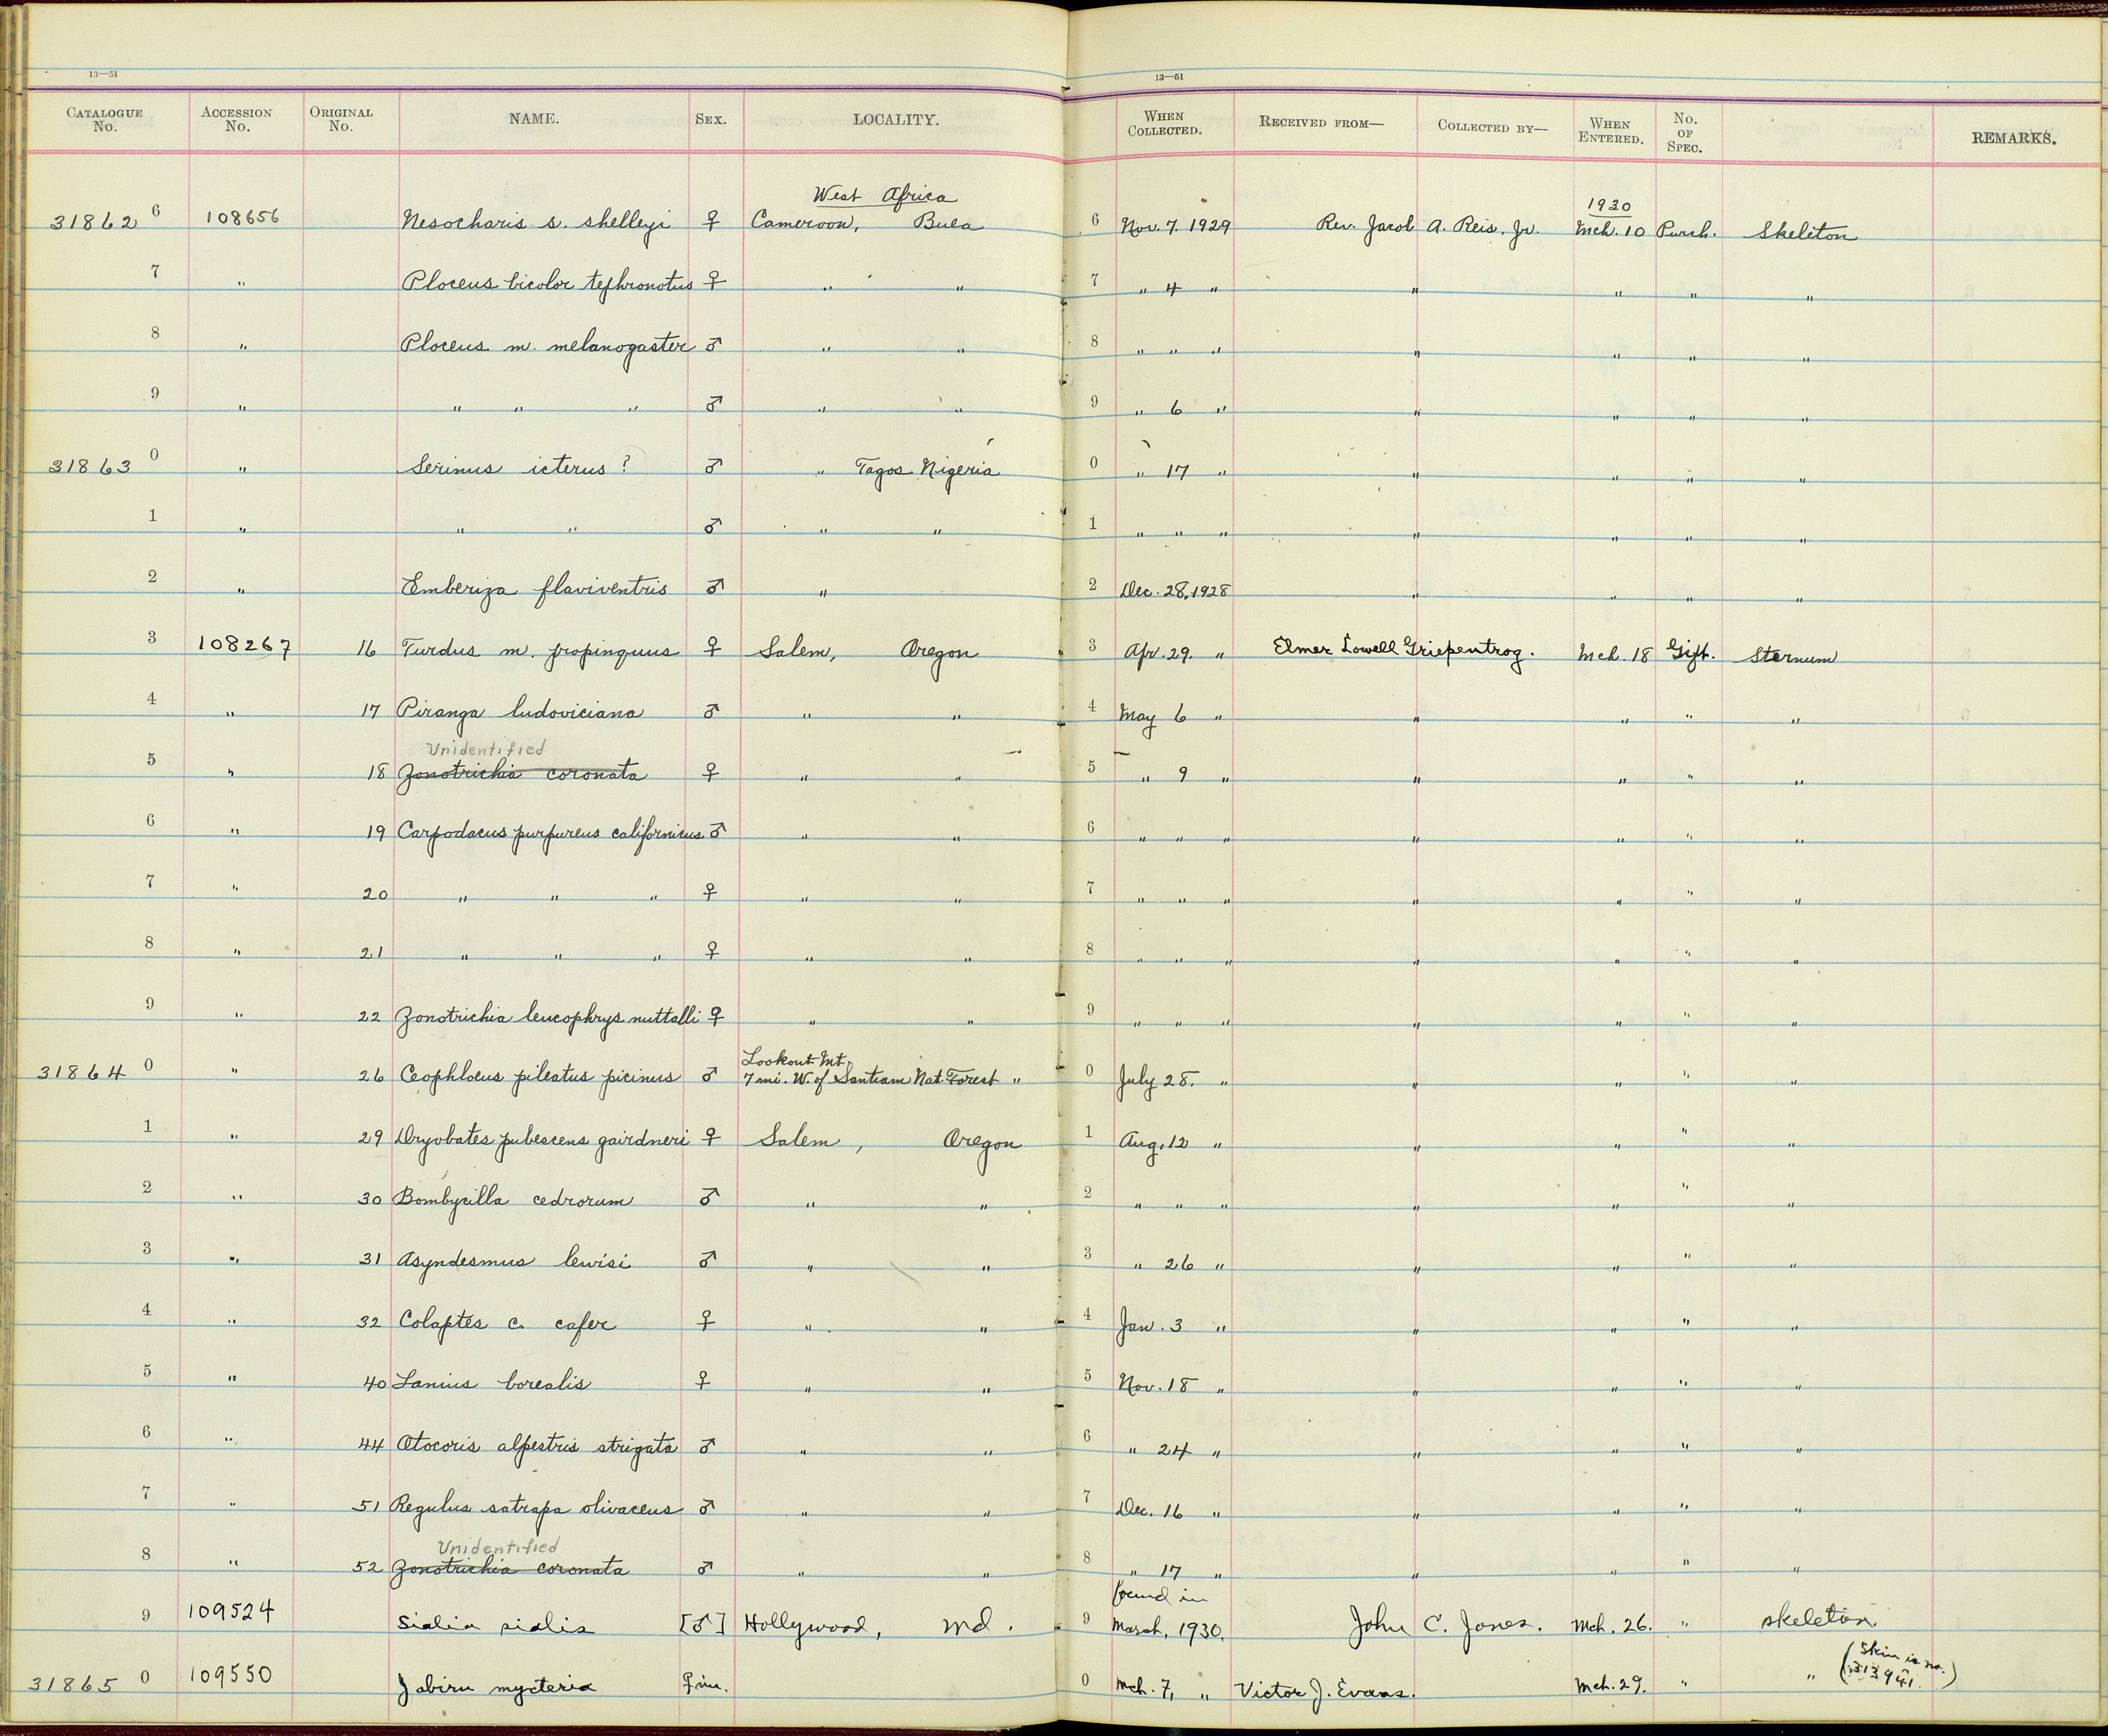 13—51
13—51
CATALOGUE No. ACCESSION No. ORIGINAL No. NAME. SEX. LOCALITY. WHEN COLLECTED. RECEIVED FROM— COLLECTED BY— WHEN ENTERED. No. OF SPEC. REMARKS.
West Africa
1930
31862 6 108656 Nesocharis s. shelleyi ♀ Cameroon, Buea 6 Nov. 7. 1929 Rev. Jacob A. Reis, Jr. Mch. 10 Purch. Skeleton
7 " Ploceus bicolor tephronotus ♀ " " 7 " 4 " " " " "
8 " Ploceus m. melanogaster ♂ " " 8 " " " " " " "
9 " " " " ♂ " " 9 " 6 " " " " "
31863 0 " Serinus icterus ? ♂ " Tagos Nigeria 0 " 17 " " " " "
1 " " " ♂ " " 1 " " " " " " "
2 " Emberiza flaviventris ♂ " 2 Dec. 28, 1928 " " " "
3 108267 16 Turdus m. propinquus ♀ Salem, Oregon 3 Apr. 29. " Elmer Lowell Griepentrog. Mch. 18 Gift. Sternum
4 " 17 Piranga ludoviciana ♂ " " 4 May 6 " " " " "
Unidentified
5 " 18 Zonotrichia coronata ♀ " " 5 " 9 " " " " "
6 " 19 Carpodacus purpureus californicus ♂ " " 6 " " " " " " "
7 " 20 " " " ♀ " " 7 " " " " " " "
8 " 21 " " " ♀ " " 8 " " " " " " "
9 " 22 Zonotrichia leucophrys nuttalli ♀ " " 9 " " " " " " "
Lookout Mt.
31864 0 " 26 Ceophloeus pileatus picinus ♂ 7 mi. W. of Santiam Nat. Forest " 0 July 28. " " " " "
1 " 29 Dryobates pubescens gairdneri ♀ Salem, Oregon 1 Aug. 12 " " " " "
2 " 30 Bombycilla cedrorum ♂ " " 2 " " " " " " "
3 " 31 Asyndesmus lewisi ♂ " " 3 " 26 " " " " "
4 " 32 Colaptes c. cafer ♀ " " 4 Jan. 3 " " " " "
5 " 40 Lanius borealis ♀ " " 5 Nov. 18 " " " " "
6 " 44 Otocoris alpestris strigata ♂ " " 6 " 24 " " " " "
7 " 51 Regulus satrapa olivaceus ♂ " " 7 Dec. 16 " " " " "
Unidentified
8 " 52 Zonotrichia coronata ♂ " " 8 " 17 " " " " "
found in
9 109524 Sialia sialis [♂] Hollywood, Md. 9 March, 1930. John C. Jones. Mch. 26. " skeleton.
31865 0 109550 Jabiru mycteria ♀ im. 0 Mch. 7, " Victor J. Evans. Mch. 29. " " (Skin is no. 313941.)